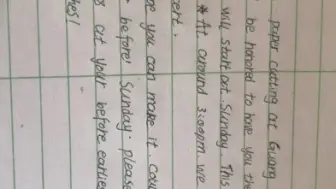 paper cutting at Guang
be honored to have you the
will start at Sunday. This
* At around 3:00pm. We
cert.
pe you can make it. Cou
before! Sunday. please
s at your before earlie
hes!